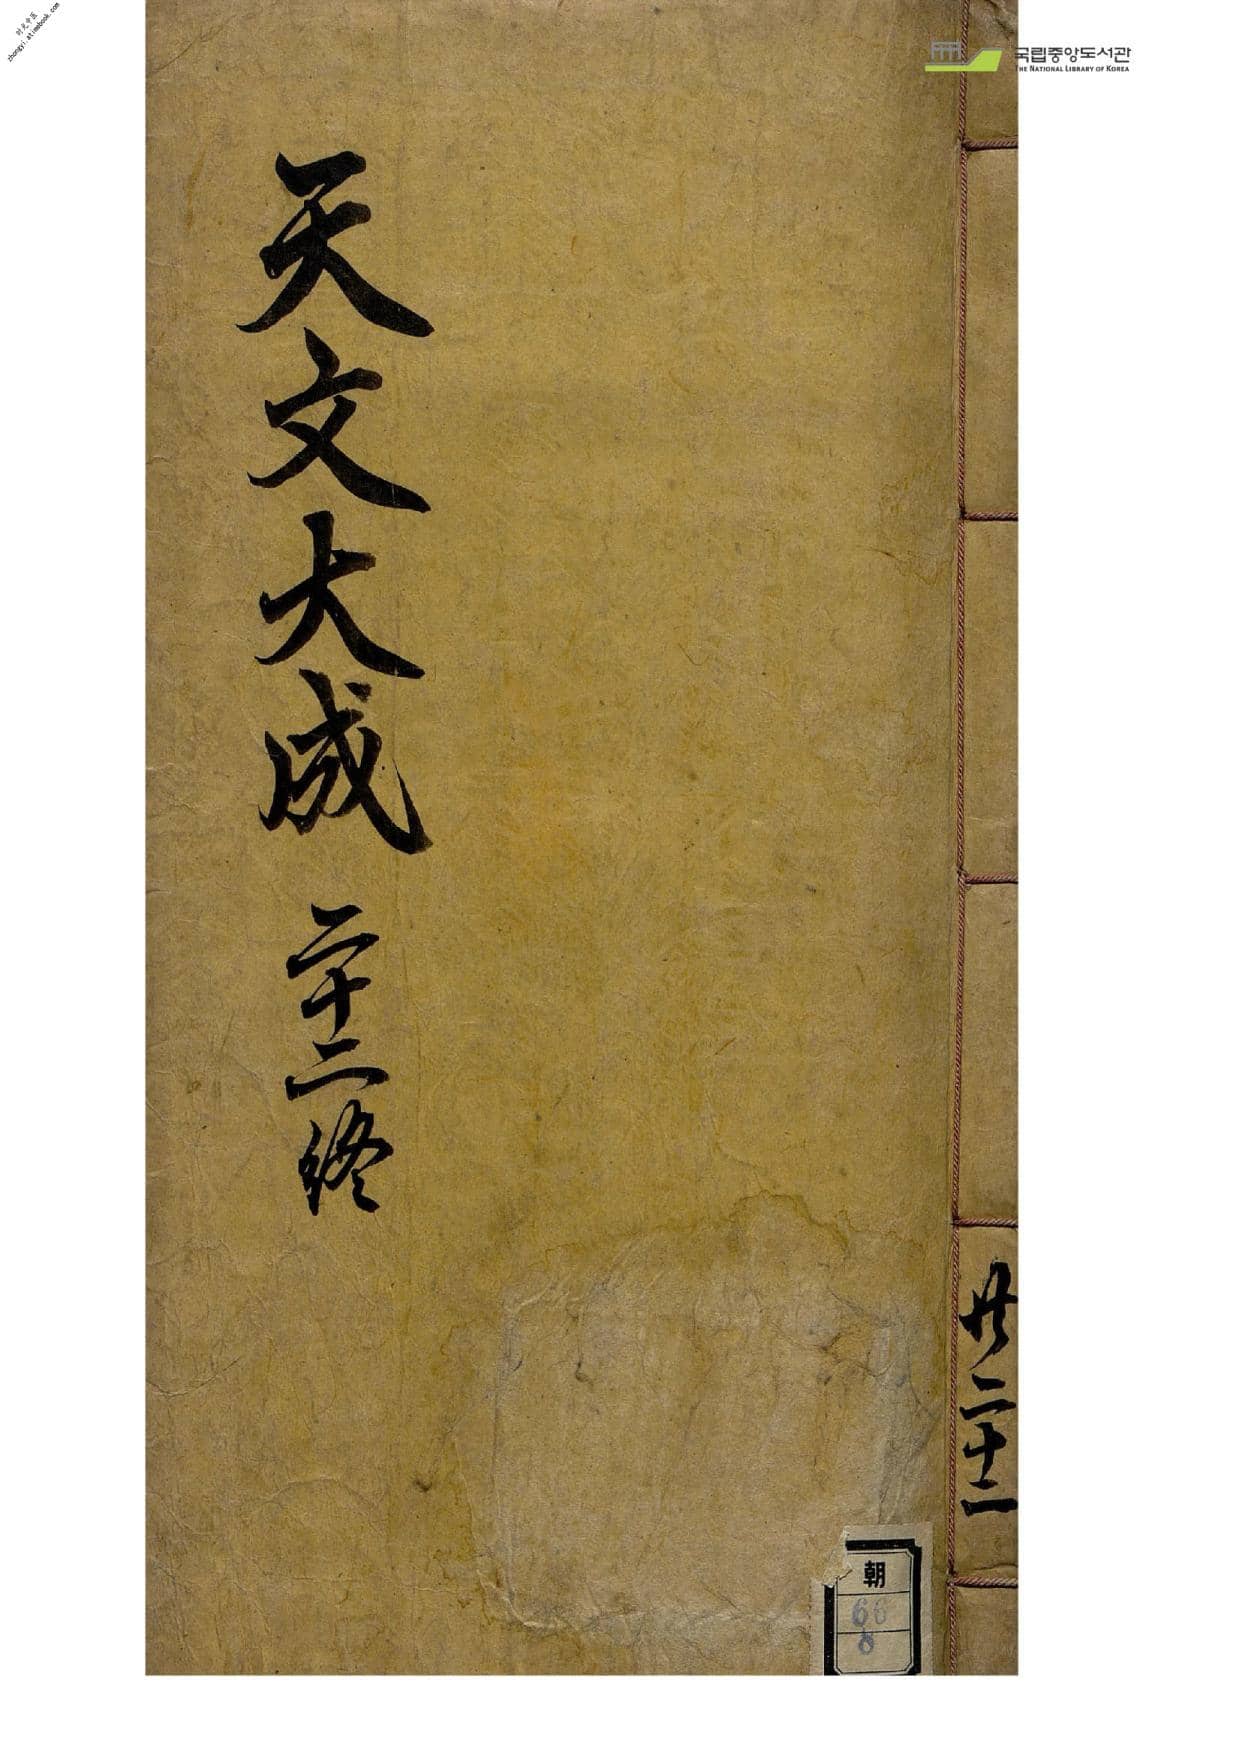 时光中医
zhongyi.atimebook.com
국립중앙도서관
THE NATIONAL LIBRARY OF KOREA
天文大成
二十二終
共二十二
朝
66
8